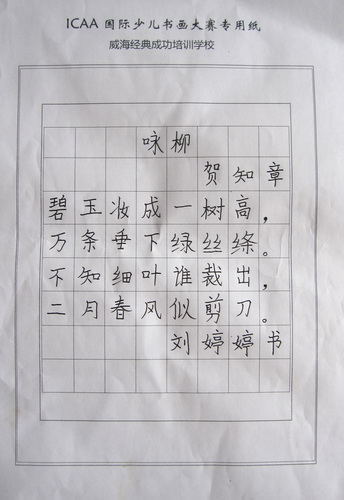 ICAA 国际少儿书画大赛专用纸
威海经典成功培训学校
咏柳
贺知章
碧玉妆成一树高，
万条垂下绿丝绦。
不知细叶谁裁出，
二月春风似剪刀。
刘婷婷书